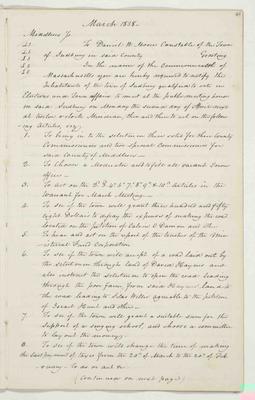 March 1838.
Middlesex Ss.
To Daniel W. Moore Constable of the Town
of Sudbury in said County Greeting
In the name of the Commonwealth of
Massachusetts you are hereby required to notify the
Inhabitants of the town of Sudbury qualified to vote in
Elections and Town affairs to meet at the public meeting house
in said Sudbury on Monday the second day of April next
at twelve o'clock Meridian, then and there to act on the follow
ing Articles, viz.
1. To bring in to the selectmen their votes for three County
Commissioners and two special Commissioners for
said County of Middlesex
2. To choose a Moderator and to fill all vacant Town
offices
3. To act on the 3d 5th 6th 7th 8th 9th & 10th Articles in the
warrant for March Meeting
4. To see if the town will grant three hundred and fifty
eight Dollars to defray the expenses of making the road
located on the petition of Calvin C Damon and others
5. To hear and act on the report of the trustees of the Min-
isterial Fund Corporation
6. To see if the town will accept of a road laid out by
the selectmen through land of David Haynes and
also instruct the selectmen to open the road leading
through the poor farm, from said Haynes land to
the road leading to Silas Willis agreeable to the petition
of Israel Hunt and others
7. To see if the town will grant a suitable sum for the
support of a singing school, and choose a committee
to lay out the money
8. To see if the town will change the time of making
the last payment of taxes from the 20th of March to the 20th of Feb
ruary. To do or act &c
(Continued on next page)